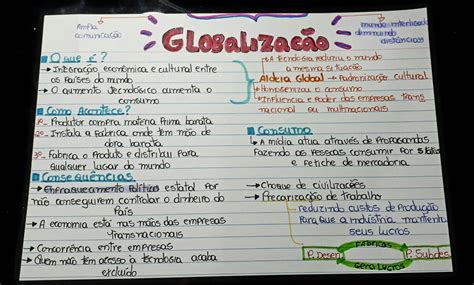 Ampla
comunicação
GLOBALIZAÇÃO
mundo interligado
diminuindo
distâncias
O que é?
→ Integração econômica e cultural entre
os países do mundo
→ O aumento tecnológico aumenta o
consumo
→ A tecnologia reduziu o mundo
a mesma situação
Aldeia Global → Padronização cultural
→ Homogenizou o consumo
→ Influência e Poder das empresas trans
nacional ou multinacionais
Como Acontece?
1º- Produtor compra matéria prima barata
2º- Instala a Fabrica onde tem mão de
obra barata
3º- Fabrica o Produto e distribui Para
qualquer lugar do mundo
Consumo
↳ A mídia atua através de Propagandas
Fazendo os Pessoas consumir Por
Fetiche de mercadoria
Consequências
→ Enfraquecimento Político estatal Por
não conseguirem controlar o dinheiro do
País
→ A economia está nas mãos das empresas
transnacionais
→ Concorrência entre empresas
→ Quem não tem acesso à tecnologia acaba
excluído
→ Choque de civilizações
→ Precarização de trabalho
reduzindo custos de Produção
Para que a indústria mantenha
seus lucros
P. Desen
Fabricas
Gera Lucros
P. Subdes